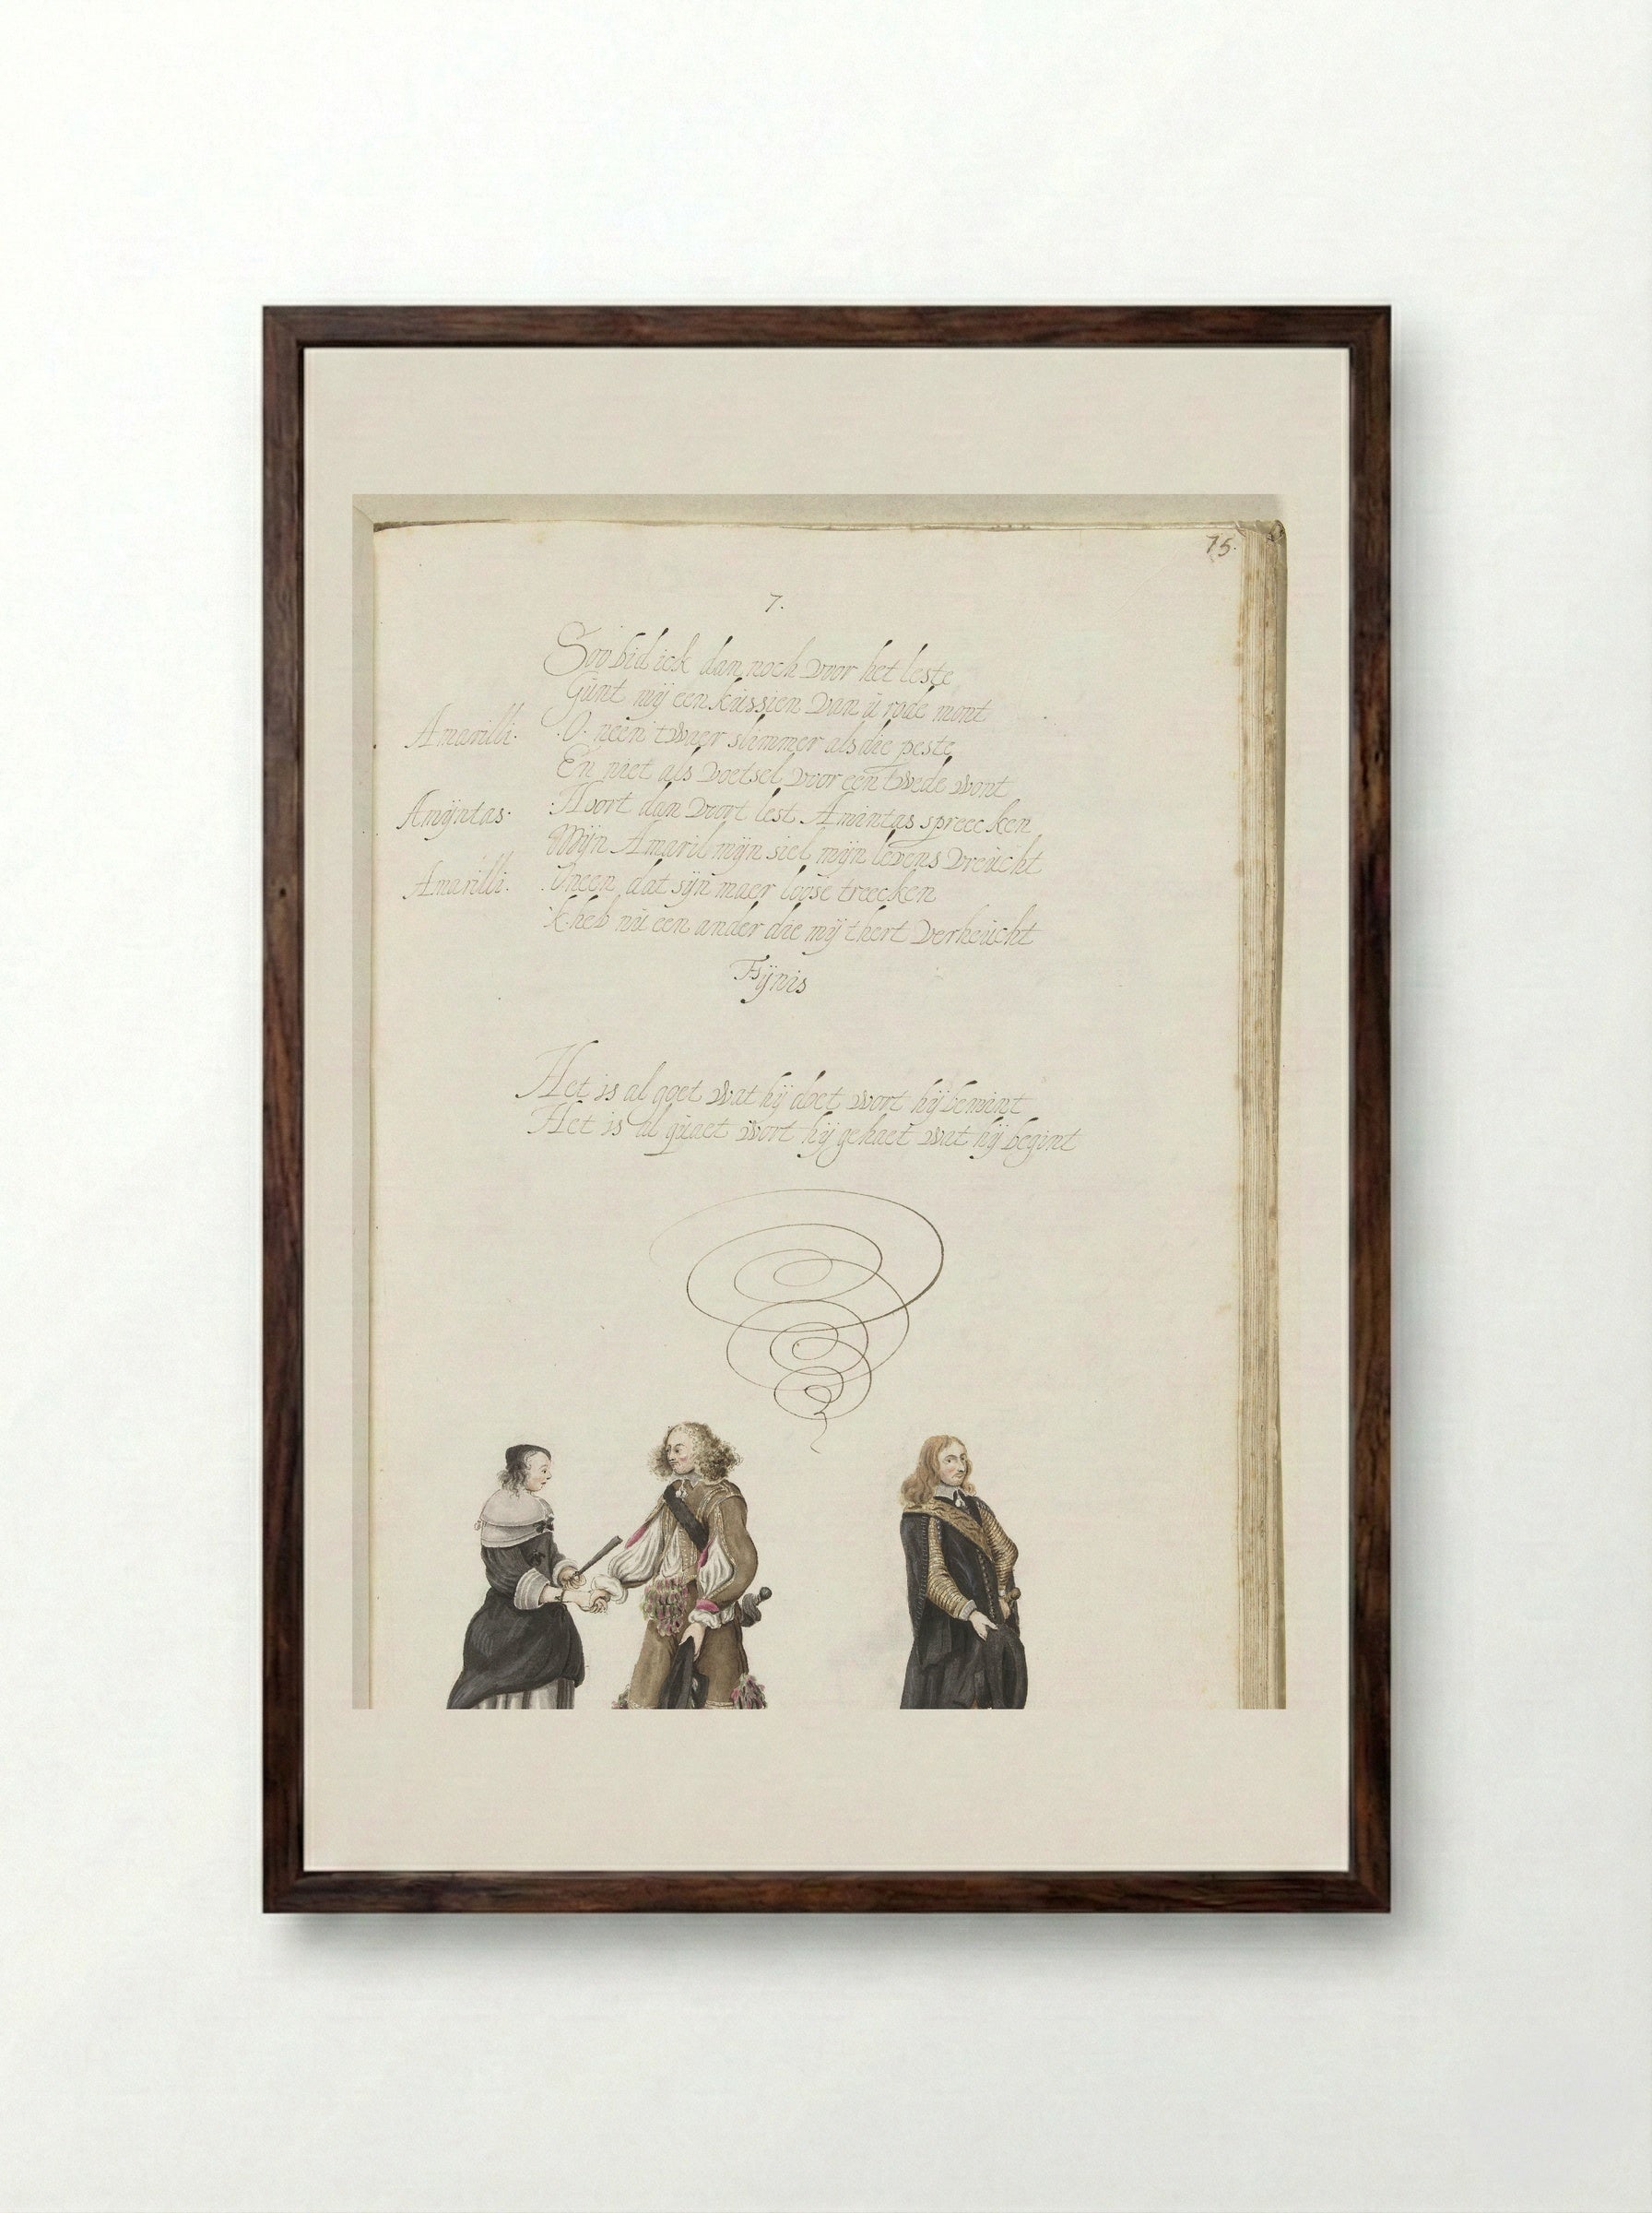 75.
7.
Soo bid ick dan noch voor het leste
Gunt mij een kussien van ü rode mont
Amarilli. O neen twaer slimmer als die peste
En niet als voetsel voor een twede wont
Amÿntas. Hoort dan voort lest Amintas spreecken
Mijn Amaril mijn siel mijn levens vreücht
Amarilli. Oneen dat sijn maer loose treecken
k heb nü een ander die mij thert verheücht
Fÿnis
Het is al goet wat hij doet wort hij bemint
Het is al quaet wort hij gehaet wat hij begint